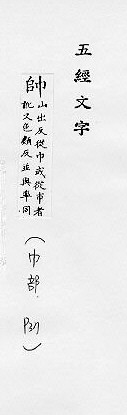 五經文字
帥
山出反從巾或從甫者
訛又色類反並與率同
(巾部.P31)